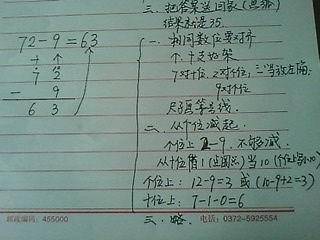 三、把答案送回家(思那)
结果就是35.
72-9=63
十个
7 2
- 9
6 3
一、相同数位要对齐
个、十支好架
7对十位、2对个位、三号放左隔
9对个位
尺子画等号线.
二、从个位减起.
个位上 2-9,不够减.
从十位借1(退圆点)当10(个位上写小10)
个位上: 12-9=3 或 (10-9+2=3)
十位上: 7-1-0=6
三、略.
邮政编码: 455000
电话: 0372-5925554